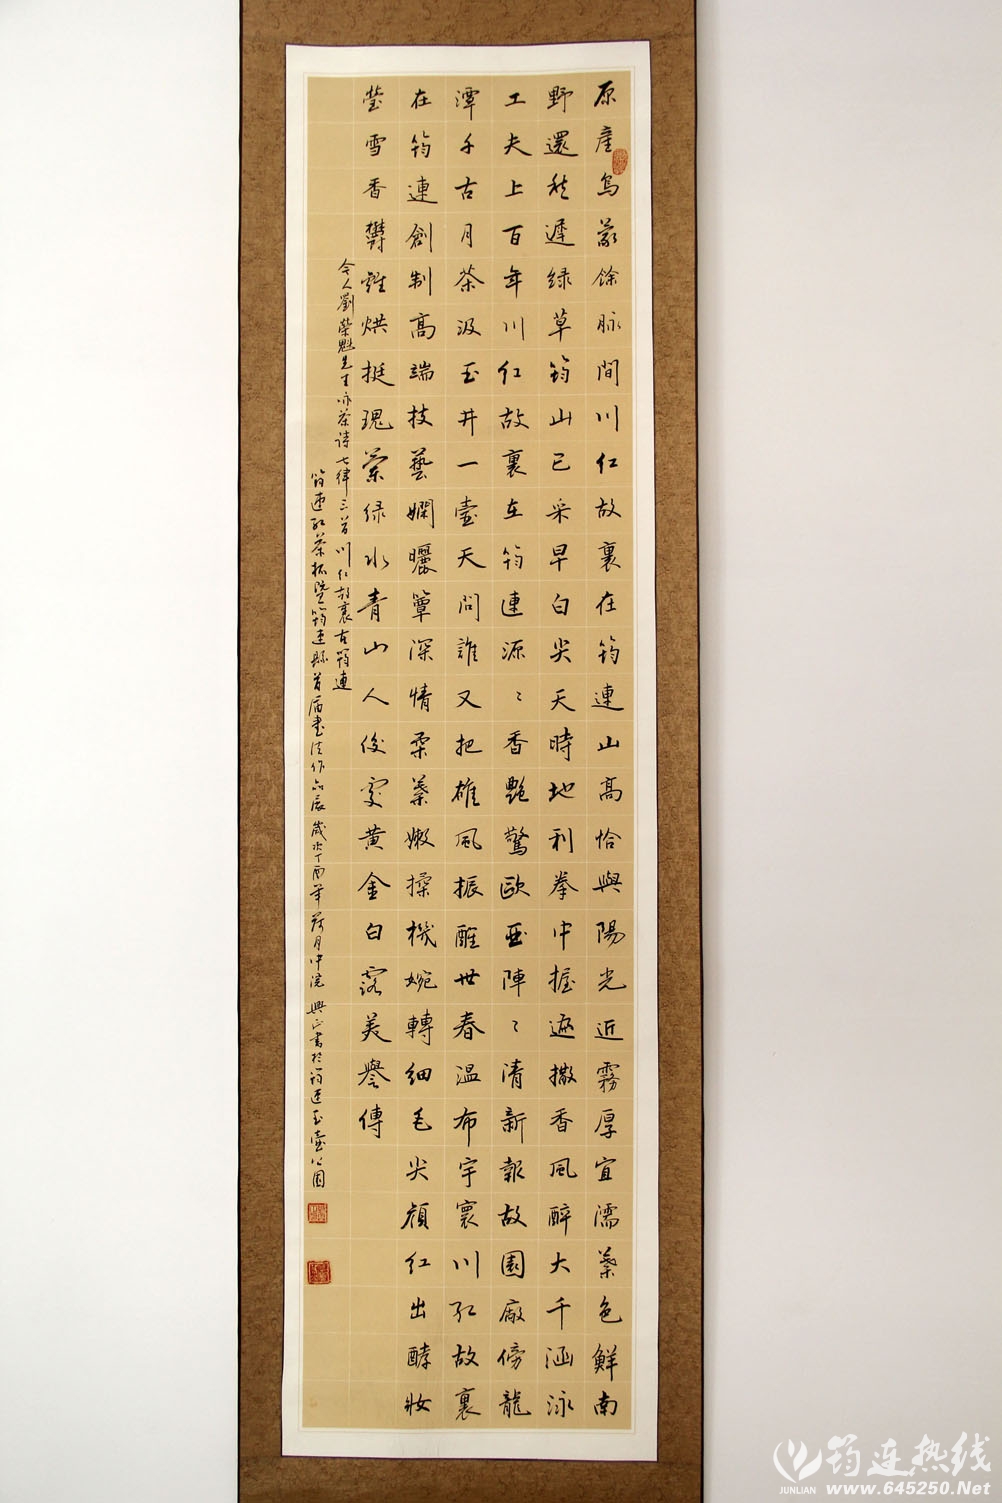 原產烏蒙餘脉間川红故裏在筠連山高恰與陽光近霧厚宜濡葉色鮮南
野還待遲绿草筠山已采早白尖天時地利拳中握遍撒香風醉大千涵泳
工夫上百年川红故裏在筠連源〻香艷驚歐亞陣〻清新報故園廠傍龍
潭千古月茶汲玉井一壺天問誰又把雄風振醒世春温布宇寰川紅故裏
在筠連創制高端技藝嫻曬簟深情柔葉嫩揉機婉轉细毛尖顔红出酵妝
瑩雪香鬱罐烘挺瑰蘭绿水青山人俊處黄金白露美譽傳
令人劉榮魁先生咏茶詩七律三首川红故裏古筠連
筠連紅茶杯暨筠連縣首届書法作品展歲次丁酉年荷月中浣興正書於筠連玉壺公園
筠连热线
JUNLIAN www.645250.Net